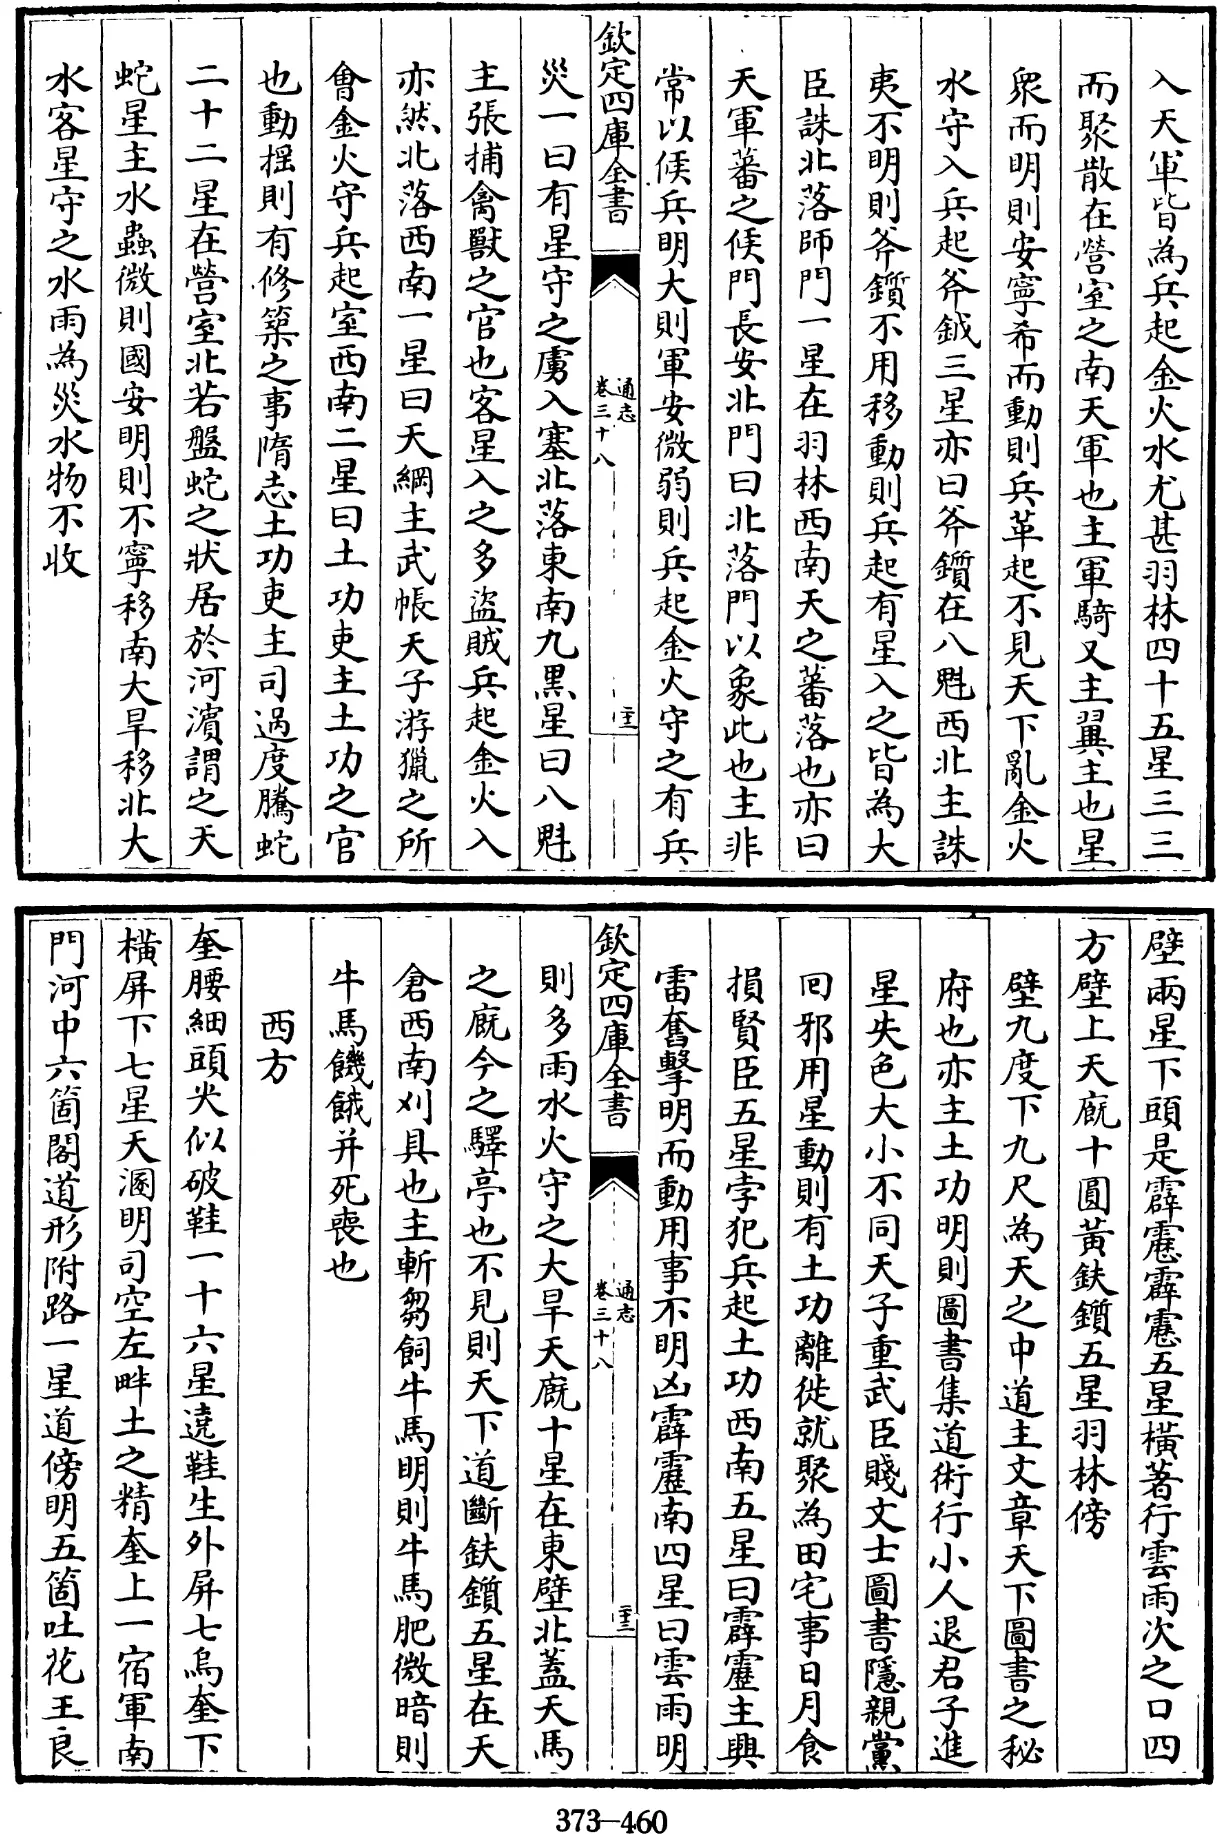 入天軍皆為兵起金火水尤甚羽林四十五星三三
而聚散在營室之南天軍也主軍騎又主翼主也星
衆而明則安寧希而動則兵革起不見天下亂金火
水守入兵起斧鉞三星亦曰斧鑕在八魁西北主誅
夷不明則斧鑕不用移動則兵起有星入之皆為大
臣誅北落師門一星在羽林西南天之蕃落也亦曰
天軍蕃之候門長安北門曰北落門以象此也主非
常以候兵明大則軍安微弱則兵起金火守之有兵
欽定四庫全書
通志
卷三十八
二十二
災一曰有星守之虜入塞北落東南九黑星曰八魁
主張捕禽獸之官也客星入之多盜賊兵起金火入
亦然北落西南一星曰天綱主武帳天子游獵之所
會金火守兵起室西南二星曰土功吏主土功之官
也動揺則有修築之事隋志土功吏主司過度騰蛇
二十二星在營室北若盤蛇之狀居於河濵謂之天
蛇星主水蟲微則國安明則不寧移南大旱移北大
水客星守之水雨為災水物不收
壁兩星下頭是霹靂霹靂五星橫著行雲雨次之口四
方壁上天廐十圓黃鈇鑕五星羽林傍
壁九度下九尺為天之中道主文章天下圖書之秘
府也亦主土功明則圖書集道術行小人退君子進
星失色大小不同天子重武臣賤文士圖書隱親黨
回邪用星動則有土功離徙就聚為田宅事日月食
損賢臣五星孛犯兵起土功西南五星曰霹靂主興
雷奮擊明而動用事不明凶霹靂南四星曰雲雨明
欽定四庫全書
通志
卷三十八
二十三
則多雨水火守之大旱天廐十星在東壁北蓋天馬
之廐今之驛亭也不見則天下道斷鈇鑕五星在天
倉西南刈具也主斬芻飼牛馬明則牛馬肥微暗則
牛馬饑餓并死喪也
西方
奎腰細頭尖似破鞋一十六星遶鞋生外屏七烏奎下
橫屏下七星天溷明司空左畔土之精奎上一宿軍南
門河中六箇閣道形附路一星道傍明五箇吐花王良
373-460